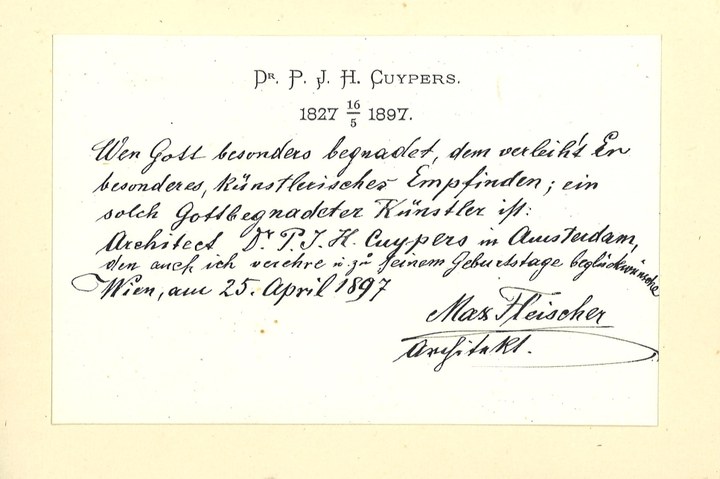 Dr. P. J. H. CUYPERS.
1827 16/5 1897.
Wen Gott besonders begnadet, dem verleih't Er
besonderes, künstlerisches Empfinden; ein
solch Gottbegnadeter Künstler ist:
Architect Dr. P. J. H. Cuypers in Amsterdam,
den auch ich verehre u. zu seinem Geburtstage beglückwünsche
Wien, am 25. April 1897
Max Fleischer
Architekt.